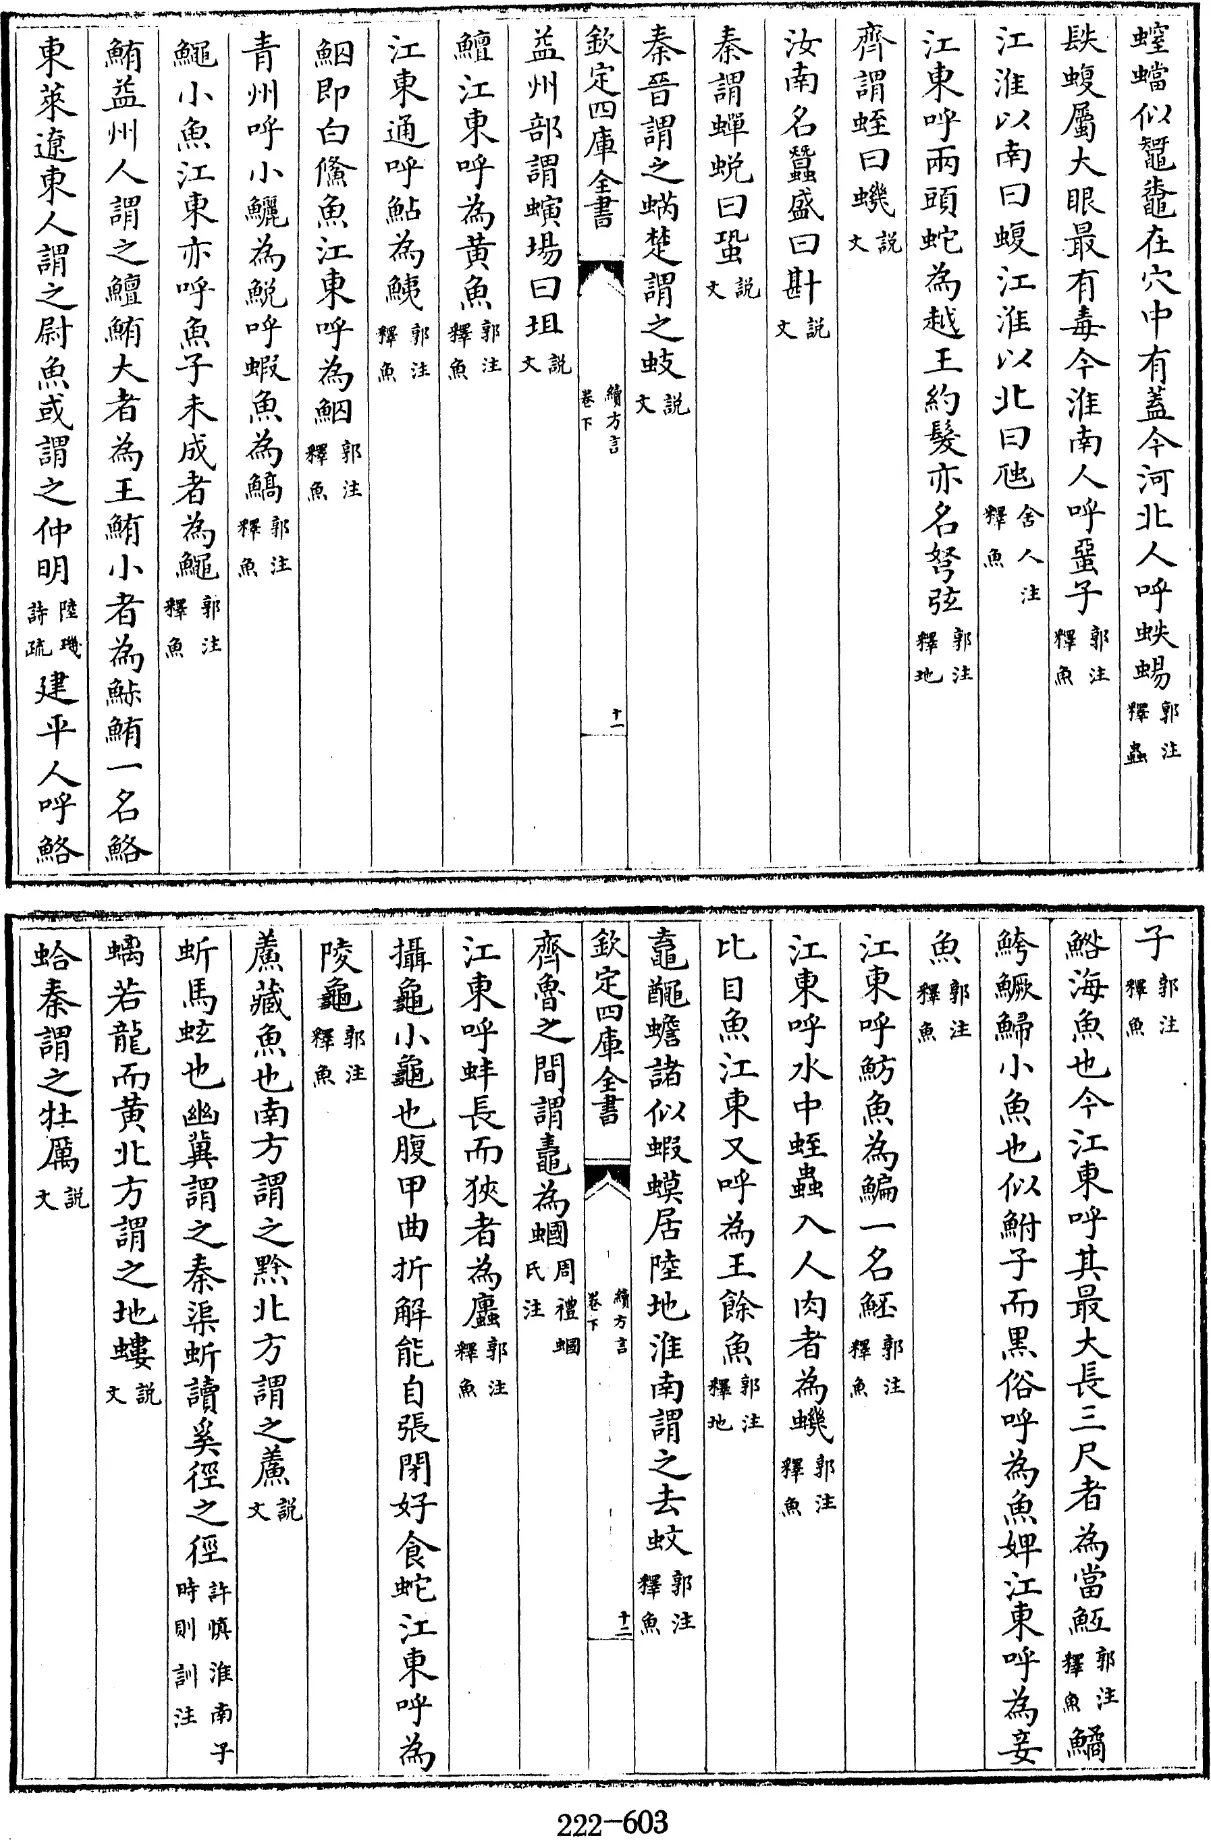 螲蟷似鼅鼄在穴中有蓋今河北人呼蛈蝪郭注釋蟲
镻蝮屬大眼最有毒今淮南人呼蝁子郭注釋魚
江淮以南曰蝮江淮以北曰虺舍人注釋魚
江東呼兩頭蛇為越王約髮亦名弩弦郭注釋地
齊謂蛭曰蟣說文
汝南名蠶盛曰斟說文
秦謂蟬蛻曰蛩說文
秦晉謂之蜹楚謂之蚊說文
欽定四庫全書 續方言卷下 十一
益州部謂螾場曰坥說文
鱣江東呼為黃魚郭注釋魚
江東通呼鮎為鮧郭注釋魚
鮂即白鯈魚江東呼為鮂郭注釋魚
青州呼小鱺為鮵呼蝦魚為鰝郭注釋魚
鱦小魚江東亦呼魚子未成者為鱦郭注釋魚
鮪益州人謂之鱣鮪大者為王鮪小者為鮛鮪一名鮥
東萊遼東人謂之尉魚或謂之仲明陸璣詩疏建平人呼鮥
子郭注釋魚
鮥海魚也今江東呼其最大長三尺者為當魱郭注釋魚鱊
鮬鱖鯞小魚也似鮒子而黑俗呼為魚婢江東呼為妾
魚郭注釋魚
江東呼魴魚為鯿一名魾郭注釋魚
江東呼水中蛭蟲入人肉者為蟣郭注釋魚
比目魚江東又呼為王餘魚郭注釋地
鼁𪓰蟾諸似蝦蟆居陸地淮南謂之去蚥郭注釋魚
欽定四庫全書 續方言卷下 十二
齊魯之間謂鼃為蟈周禮蟈氏注
江東呼蚌長而狹者為蠯郭注釋魚
攝龜小龜也腹甲曲折解能自張閉好食蛇江東呼為
陵龜郭注釋魚
䲑藏魚也南方謂之䰼北方謂之䲑說文
蚈馬蚿也幽冀謂之秦渠蚈讀奚徑之徑許慎淮南子時則訓注
螭若龍而黃北方謂之地螻說文
蛤秦謂之牡厲說文
222-603